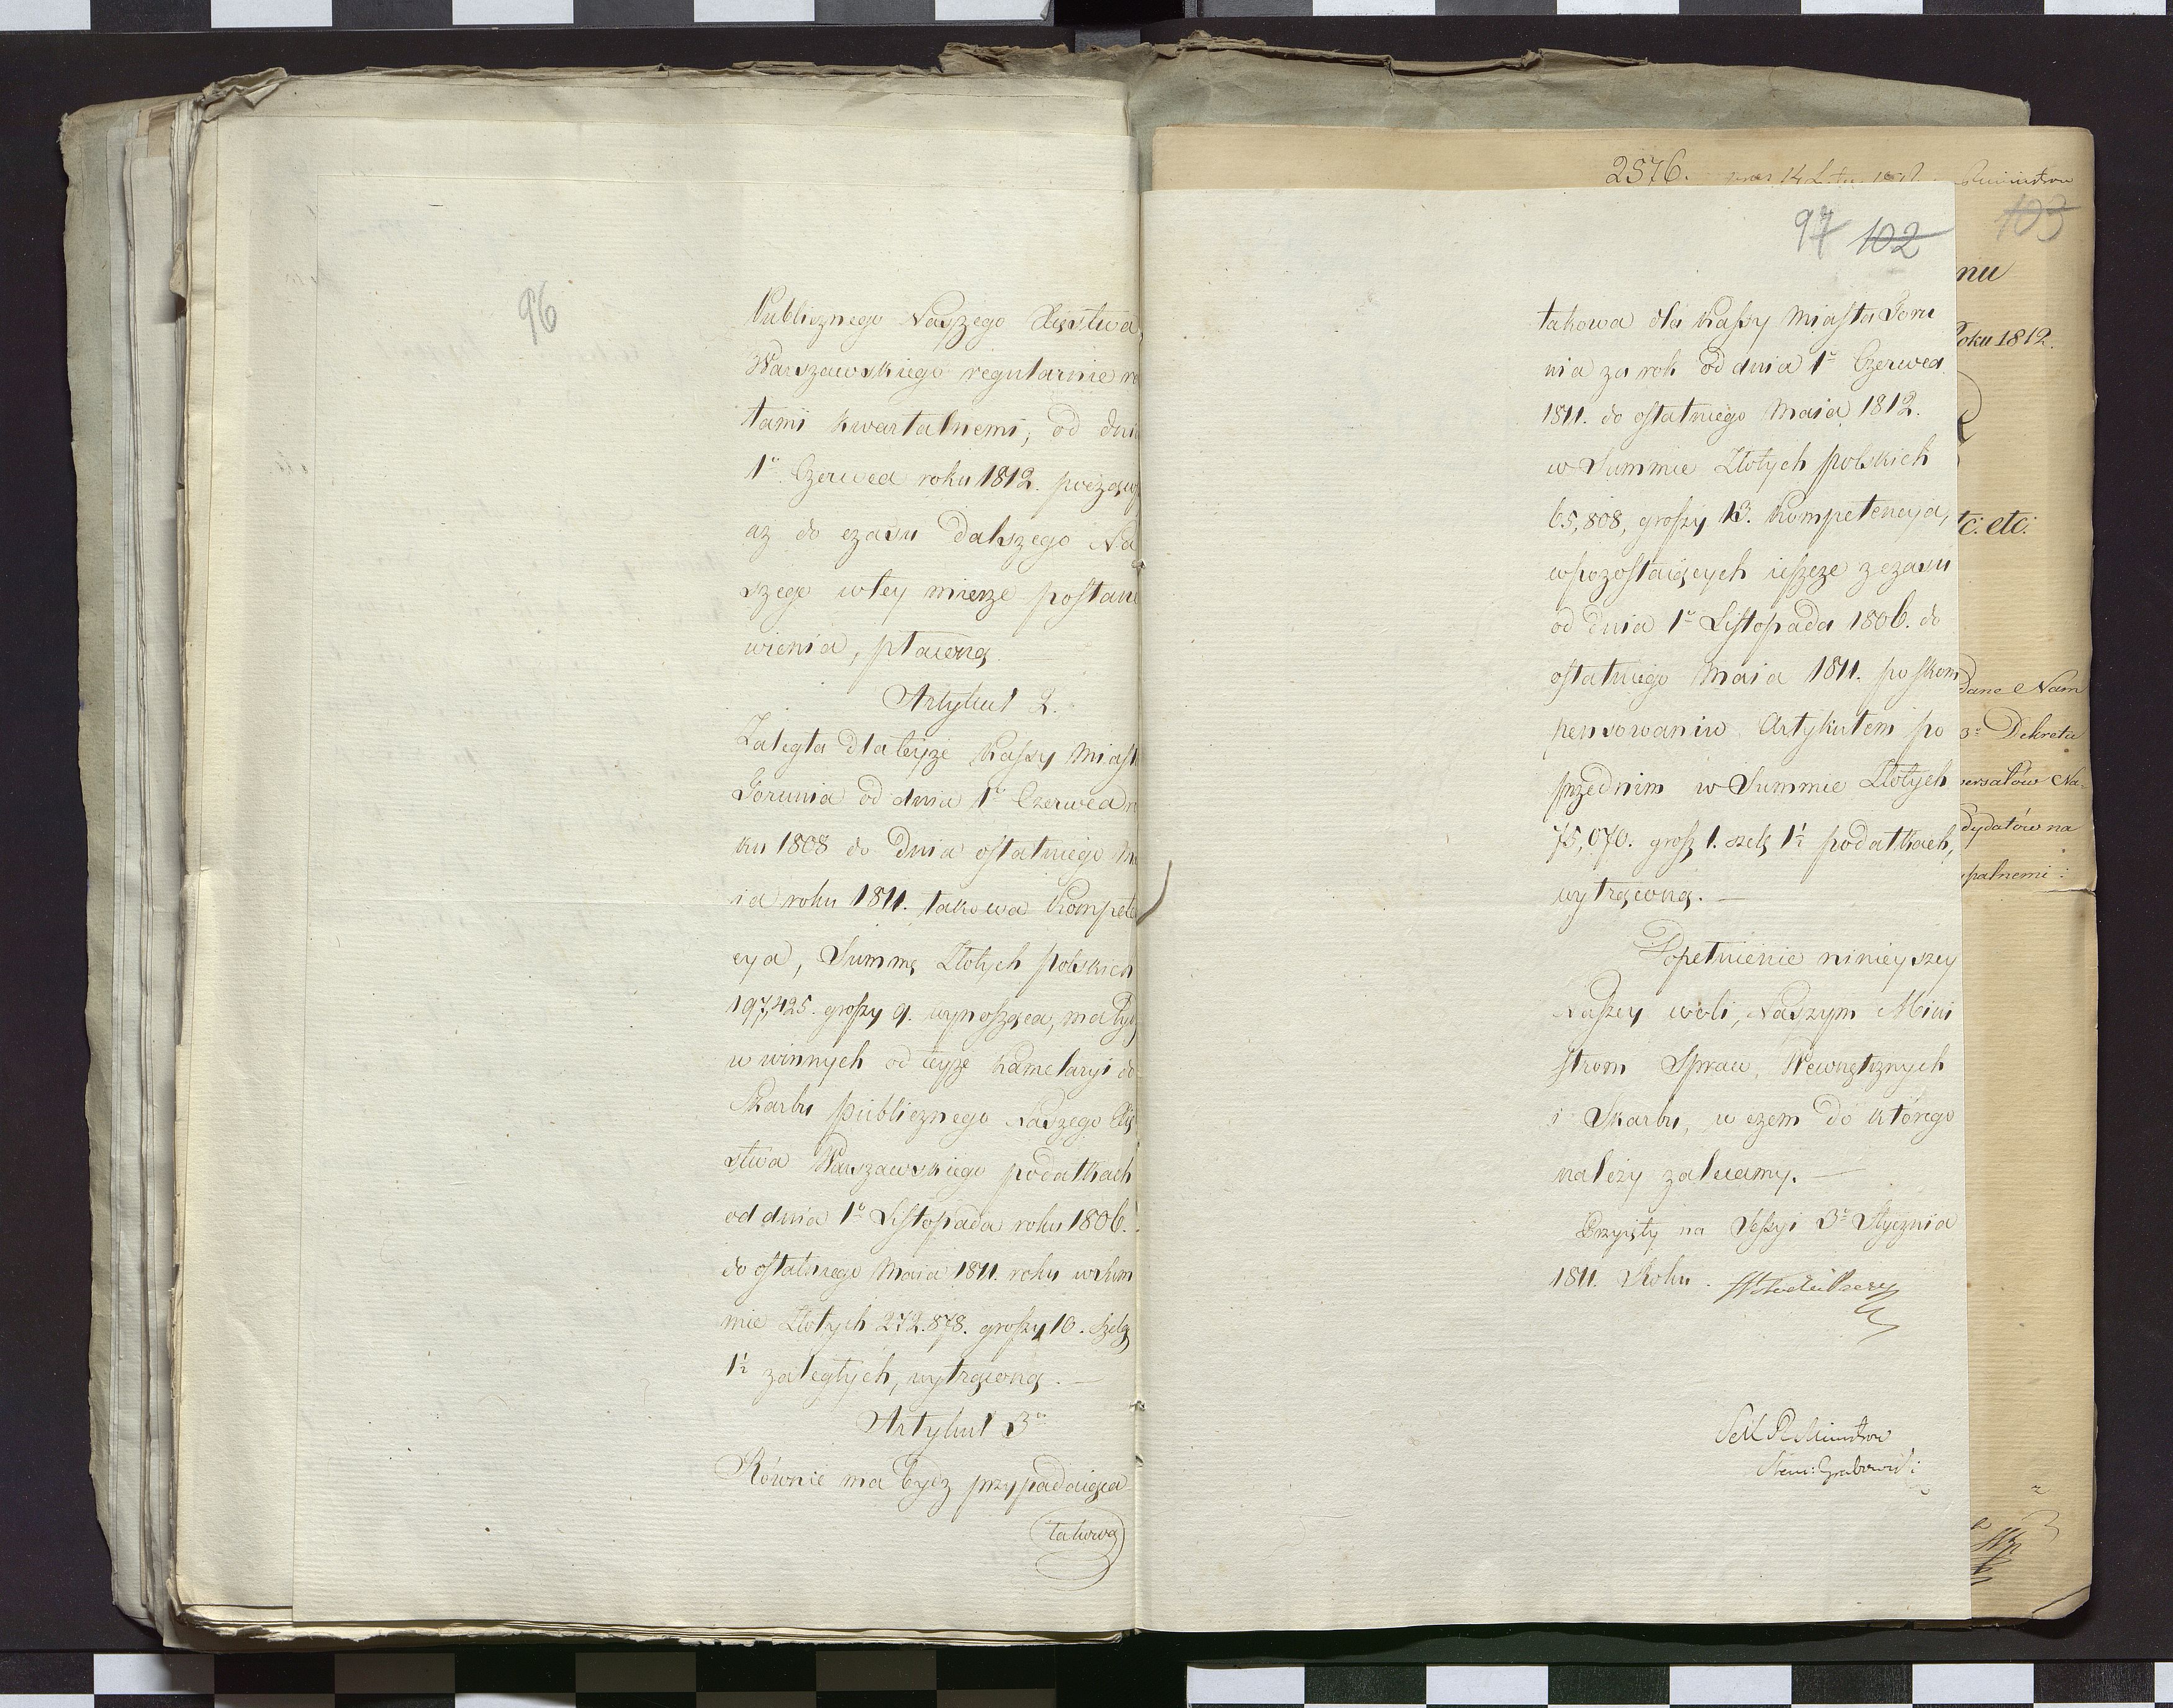 96
Publicznego Naszego Xięstwa
Warszawskiego regularnie ra
tami kwartalnemi, od dnia
1º Czerwca roku 1812. począwsz
aż do czasu dalszego Na
szego w tey mierze postano
wienia, płaconą
Artykuł 2.
Zaległa dla teyże Kassy Miasta
Torunia od dnia 1º Czerwca ro
ku 1808 do Dnia ostatniego Ma
ia roku 1811. takowa Kompeten
cya, Summę Złotych polskich
197,425. groszy 9. wynosząca, ma bydź
w winnych od teyże Kamelaryi do
Skarbu publicznego Naszego Xię
stwa Warszawskiego podatkach
od dnia 1º Listopada roku 1806.
do ostatniego Maia 1811. roku w Sum
mie Złotych 272.878. groszy 10. szelg
1½ zaległych, wytrąconą. —
Artykuł 3º
Równie ma bydz przypadaiąca
takowa
2576.
103
97 102
takowa dla Kassy Miasta Toru
nia za rok od dnia 1º Czerwca
1811. do ostatniego Maia 1812.
w Summie Złotych polskich
65,808, groszy 13. Kompetencya,
w pozostaiących ieszcze z czasu
od dnia 1º Listopada 1806. do
ostatniego Maia 1811. po skom
pensowaniu Artykułem po
przednim w Summie Złotych
75,070. grosz 1. szelg 1½ podatkach,
wytrąconą. —
Dopełnienie ninieyszey
Naszey woli, Naszym Mini
strom Spraw Wewnętrznych
i Skarbu, w czem do którego
należy zalecamy. —
Przyięty na Sessyi 3º Stycznia
1811. Roku.
Sekr R Ministrów
Stan: Grabowski
nu
oku 1812.
tc: etc:
dane Nam
3º Dekretu
wersałów Na-
dydatów na
ypalnemi: